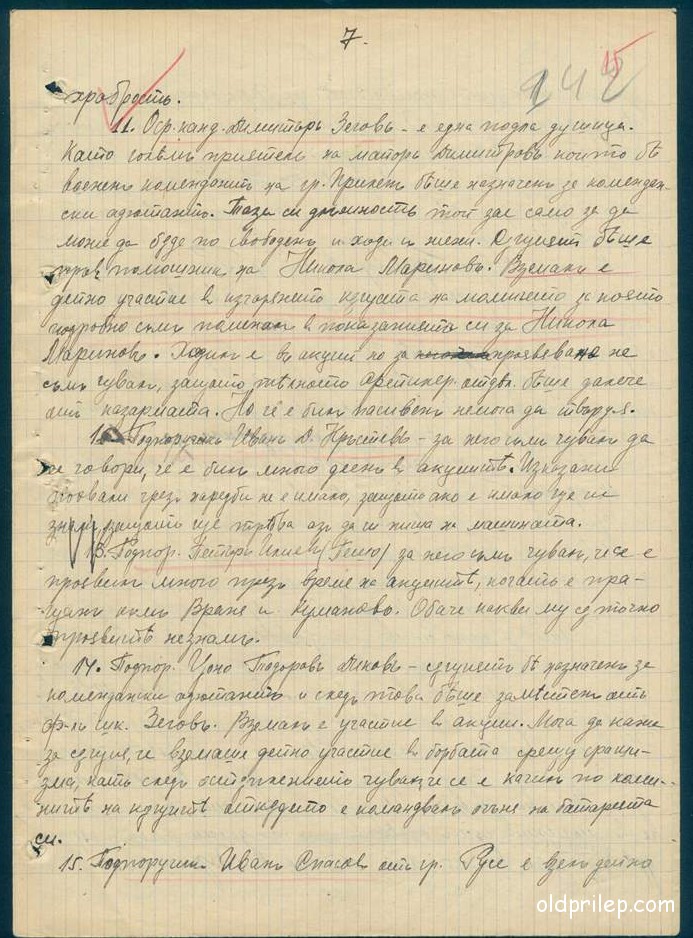 7.
15
142
храбрость.
11. Оф. канд. Димитъръ Зеговъ - е една подла душица.
Като голѣмъ приятель на маиоръ Димитровъ който бѣ
военень комендантъ на гр. Прилепъ бѣше назначенъ за комендан-
ски адютантъ. Тази си длъжность той зае само за да
може да бѫде по свободенъ и ходи и жени. Сѫщият бѣше
пръв помощник на Никола Мариновъ. Вземалъ е
дейно участие в изгарянето на момичето за която
подробно съмъ поменал в показанията си за Никола
Маринов. Ходил е въ акции но за проявяване не
съмъ чувалъ, защото тѣхното артилер. отдѣл. бѣше далече
отъ казармата. Но че е билъ пасивенъ немога да твърдя.
12. Подпоручикъ Иванъ Д. Кръстевъ - за него съмъ чувал да
се говори, че е билъ много деенъ в акциитѣ. Изказани
похвали чрезъ наредби не е имало, защото ако е имало щѣх
зная, защото ще трѣбва азъ да ги пиша на машината.
13. Подпор. Петъръ Илиевъ /Гешо/ за него съмъ чувал, че се е
проявилъ много презъ време на акциитѣ, когато е пра-
щанъ къмъ Враня и Куманово. Обаче какви му сѫ точно
проявитѣ незнамъ.
14. Подпор. Цоно Тодоровъ Диковъ - сѫщиятъ бѣ назначенъ за
комендански адютантъ и следъ това бѣше замѣстенъ отъ
Зеговъ. Вземалъ е участие в акции. Мога да кажа
за сѫщия, че вземаше дейно участие в борбата срещу фаши-
зма, като следъ чувахъ че се е качилъ по коми-
нитѣ на кѫщитѣ откѫдето е командвалъ огъня на батареята
си.
15. Подпоручикъ Иванъ Спасовъ отъ гр. Русе е взелъ дейно
oldprilep.com